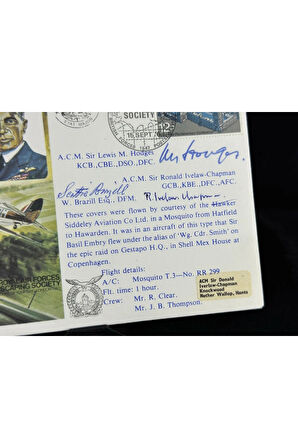 SOCIETY
15 SEPT
A.C.M. Sir Lewis M. Hodges
KCB.,CBE.,DSO.,DFC.
A.C.M. Sir Ronald Ivelaw-Chapman
GCB.,KBE.,DFC.,AFC.
W. Brazill Esq., DFM.
These covers were flown by courtesy of the Hawker
Siddeley Aviation Co Ltd. in a Mosquito from Hatfield
to Hawarden. It was in an aircraft of this type that Sir
Basil Embry flew under the alias of ‘Wg. Cdr. Smith’ on
the epic raid on Gestapo H.Q., in Shell Mex House at
Copenhagen.
Flight details:
A/C: Mosquito T.3—No. RR 299
Flt. time: 1 hour.
Crew: Mr. R. Clear.
Mr. J. B. Thompson.
FORCES
ESCAPING SOCIETY
ACM Sir Donald
Iverlaw-Chapman
Knockwood
Nether Wallop, Hants